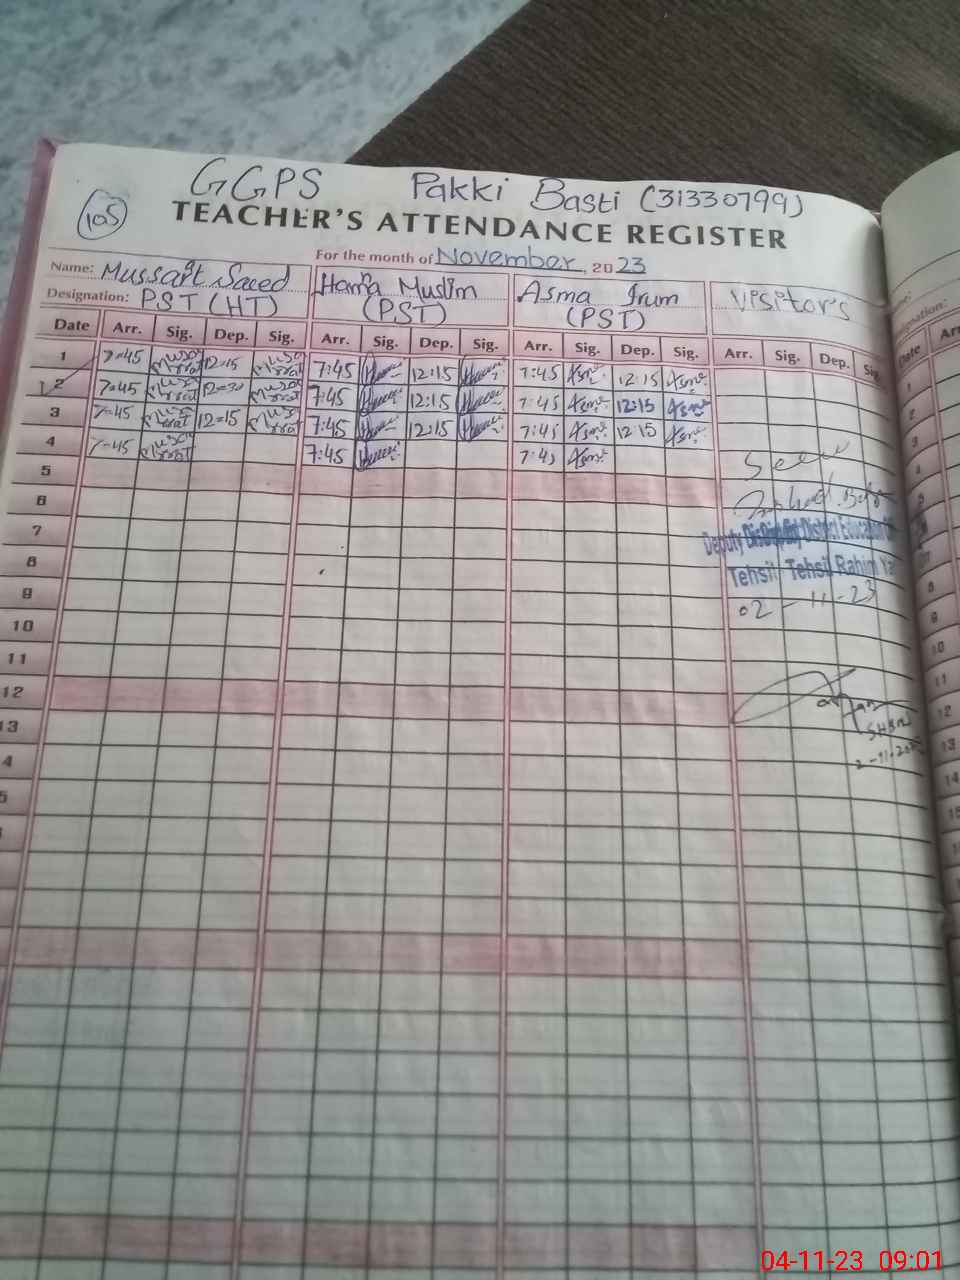 GGPS Pakki Basti (31330799)
105
TEACHER'S ATTENDANCE REGISTER
For the month of November, 2023
Name: Mussarat Saeed Hama Muslim Asma Irum Visitors
Designation: PST (HT) (PST) (PST)
Date Arr. Sig. Dep. Sig. Arr. Sig. Dep. Sig. Arr. Sig. Dep. Sig. Arr. Sig. Dep.
1 7=45 12=15 7:45 12:15 7:45 12:15
2 7=45 12=30 7:45 12:15 7:45 12:15
3 7=45 12=15 7:45 12:15 7:45 12:15
4 7=45 7:45 7:45
5
6
7
8
9
10
11
12
13
4
5
Seen
Deputy District Education
Tehsil Rahim Ya
02-11-23
04-11-23 09:01